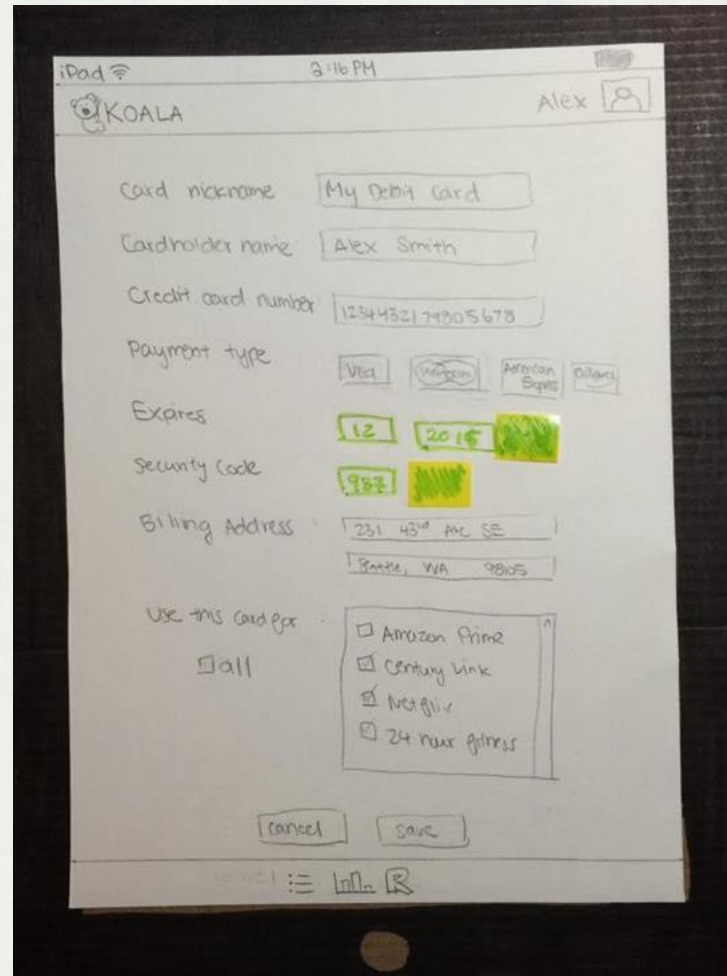 iPad 2:16 PM
KOALA Alex
Card nickname My Debit Card
Cardholder name Alex Smith
Credit card number
Payment type Visa American Express
Expires 12 2015
Security Code 987
Billing Address 231 43rd Ave SE
Seattle, WA 98105
Use this card for
Amazon Prime
all Century Link
Netflix
24 hour fitness
cancel save